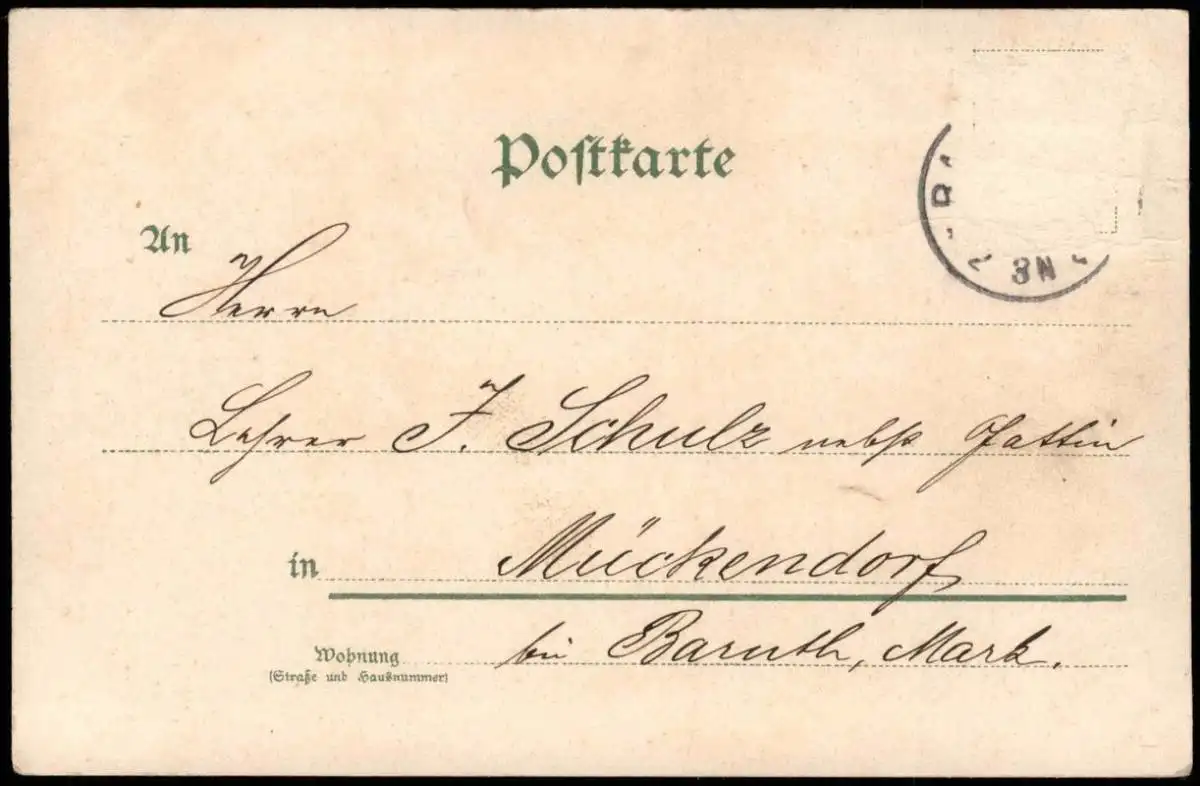 Postkarte
An
Herrn
Lehrer J. Schulz nebst Gattin
in Mückendorf
bei Baruth, Mark.
Wohnung
(Straße und Hausnummer)
8N